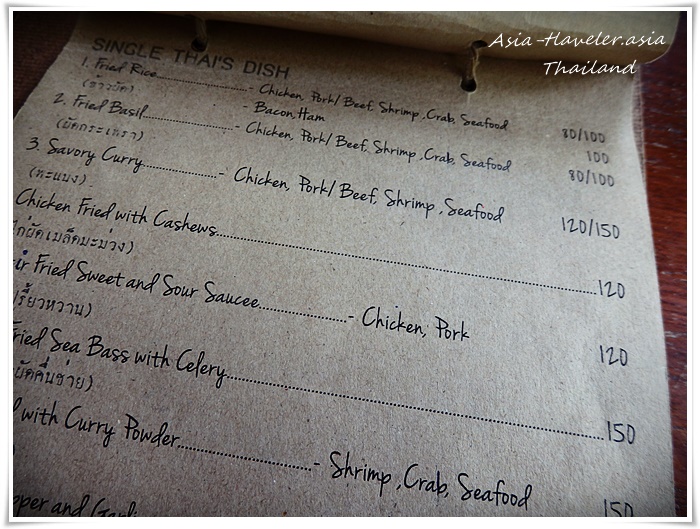 Asia-Haveler.asia
Thailand
SINGLE THAI'S DISH
1. Fried Rice - Chicken, Pork/ Beef, Shrimp ,Crab, Seafood 80/100
(ข้าวผัด) - Bacon,Ham 100
2. Fried Basil - Chicken, Pork/ Beef, Shrimp ,Crab, Seafood 80/100
(ผัดกระเพรา)
3. Savory Curry - Chicken, Pork/ Beef, Shrimp , Seafood 120/150
(พะแนง)
Chicken Fried with Cashews 120
ไก่ผัดเม็ดมะม่วง)
ir Fried Sweet and Sour Saucee - Chicken, Pork 120
เปรี้ยวหวาน)
Fried Sea Bass with Celery 150
ผัดคื่นช่าย)
with Curry Powder - Shrimp ,Crab, Seafood 150